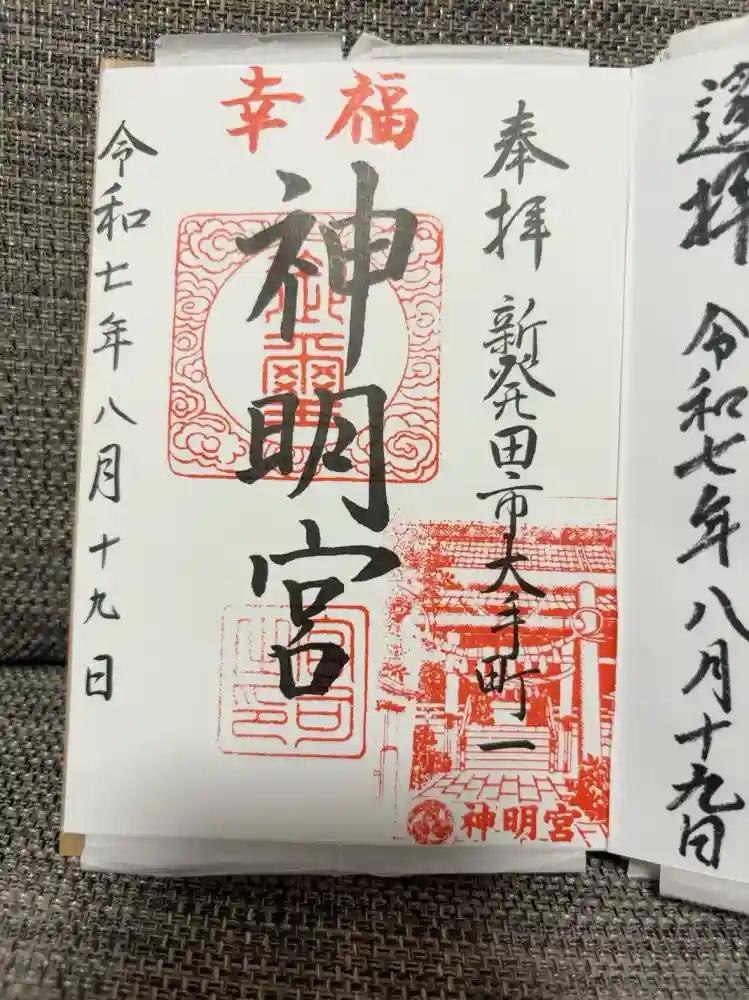 遙拝
令和七年八月十九日
奉拝
新発田市大手町一
幸福
神明宮
御璽
宮司之印
神明宮
令和七年八月十九日